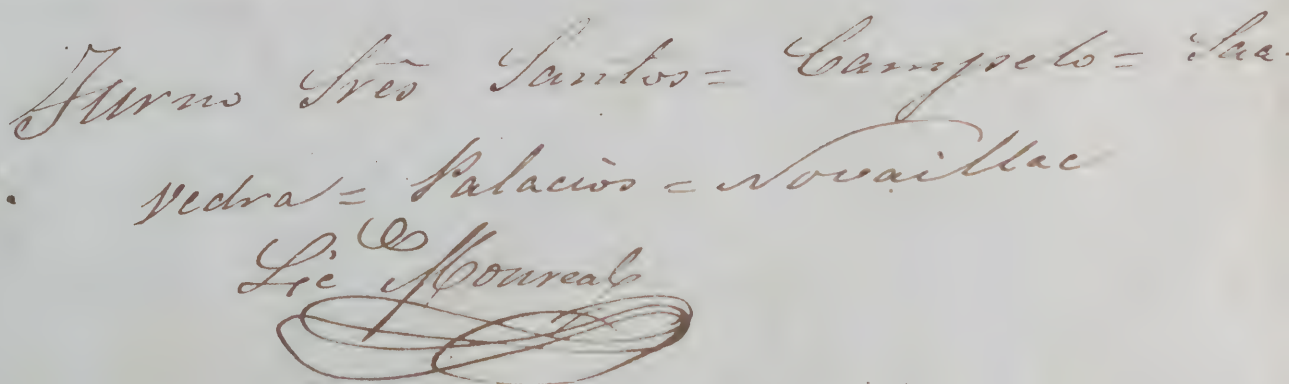 Turno Sres Santos = Campelo = Saa-
vedra = Palacios = Novaillac
Licdo Monreal